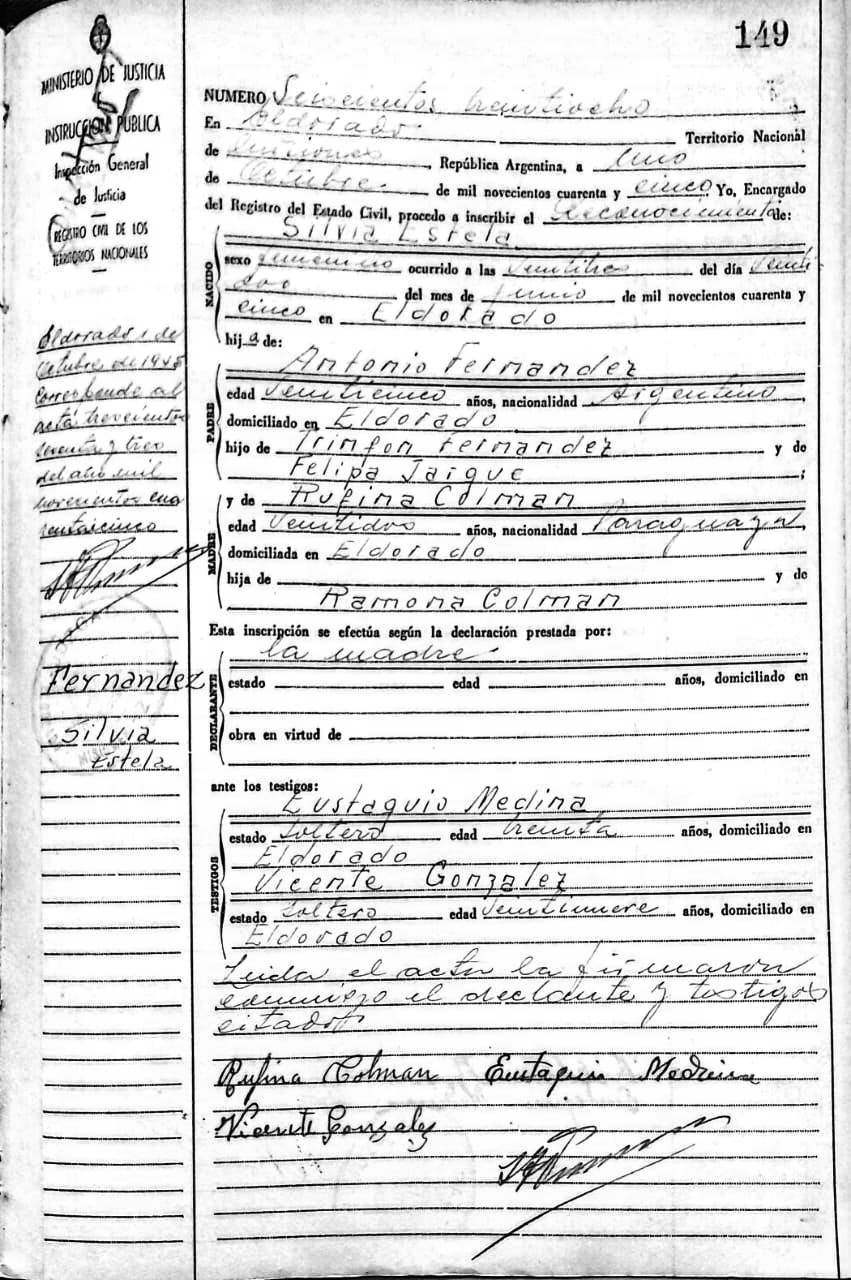 149
MINISTERIO DE JUSTICIA
E
INSTRUCCION PUBLICA
Inspección General
de Justicia
REGISTRO CIVIL DE LOS
TERRITORIOS NACIONALES
Eldorado 1 de
Octubre de 1945
Corresponde al
acta trescientos
sesenta y tres
del año mil
novecientos cua
rentaicinco
Fernandez
Silvia
Estela
NUMERO Seiscientos treintiocho
En Eldorado Territorio Nacional
de Misiones, República Argentina, a uno
de Octubre de mil novecientos cuarenta y cinco Yo, Encargado
del Registro del Estado Civil, procedo a inscribir el Reconocimiento de:
NACIDO
Silvia Estela
sexo femenino ocurrido a las veintitres del día veinti-
dos del mes de junio de mil novecientos cuarenta y
cinco en Eldorado
hija de:
PADRE
Antonio Fernandez
edad veinticinco años, nacionalidad Argentino,
domiciliado en Eldorado
hijo de Fernandez y de
Felipa Jarque;
MADRE
y de Rufina Colman
edad veintidos años, nacionalidad Paraguaya,
domiciliada en Eldorado
hija de y de
Ramona Colman
Esta inscripción se efectúa según la declaración prestada por:
DECLARANTE
la madre
estado edad años, domiciliado en
obra en virtud de
ante los testigos:
TESTIGOS
Eustaquio Medina
estado soltero edad treinta años, domiciliado en
Eldorado
Vicente Gonzalez
estado soltero edad veintinueve años, domiciliado en
Eldorado
Leida el acta la firmaron
conmigo el declante y testigos
citados
Rufina Colman Eustaquio Medina
Vicente Gonzalez